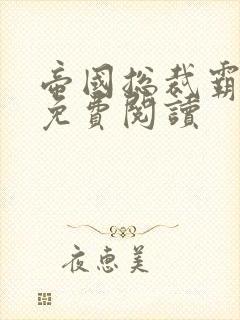 帝國總裁霸
免費閱讀
夜惠美